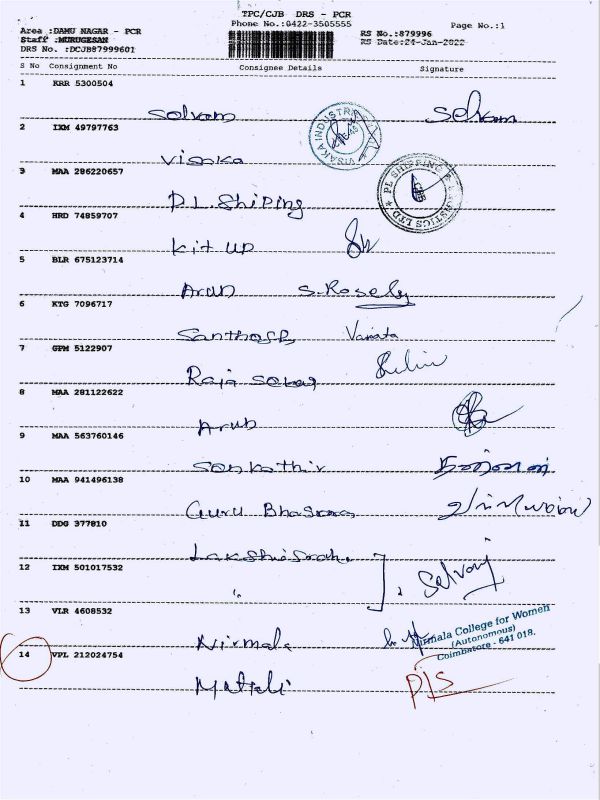 TPC/CJB DRS - PCR
Phone No.:0422-3505555
Page No.:1
Area :DAMU NAGAR - PCR
Staff :MURUGESAN
DRS No. :DCJB87999601
RS No.:879996
RS Date:24-Jan-2022
S No Consignment No Consignee Details Signature
1 KRR 5300504
Selvam Selvam
2 IXM 49797763
VISAKA INDUSTRIES
Visaka
3 MAA 286220657
PL SHIPPING & LOGISTICS LTD
P.L. Shiping
4 HRD 74859707
Kit up
5 BLR 675123714
Arun S.Rosely
6 KTG 7096717
Santhosh Vanita
7 GPM 5122907
Raja Sekar
8 MAA 281122622
Arun
9 MAA 563760146
Senkathir
10 MAA 941496138
Guru Bhaskara
11 DDG 377810
12 IXM 501017532
" Selvaraj
13 VLR 4608532
Nirmala College for Women
(Autonomous)
Coimbatore - 641 018.
Nirmala
14 VPL 212024754